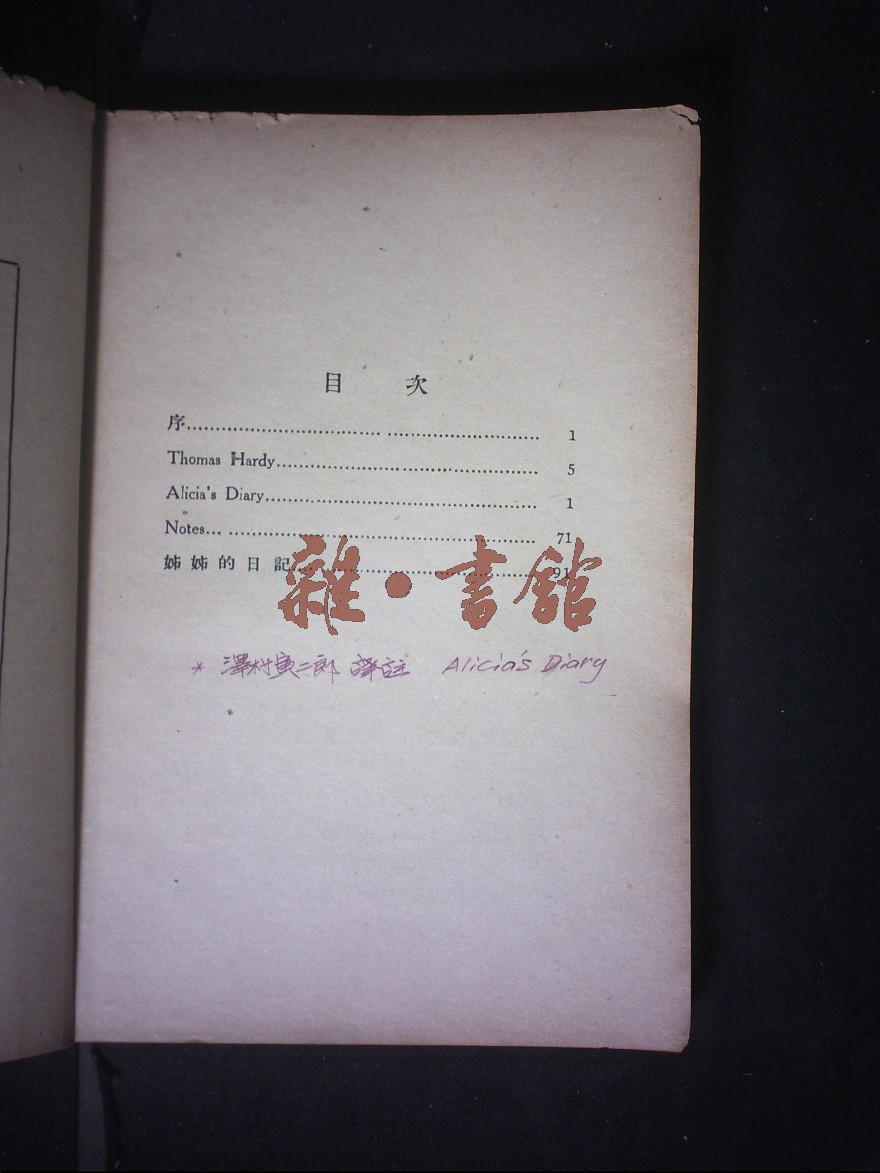 目 次
序............................................................ 1
Thomas Hardy.............................................. 5
Alicia's Diary................................................ 1
Notes... ...................................................... 71
姊姊的日記................................................ 91
雜·書館
* 澤村寅二郎 譯註 Alicia's Diary